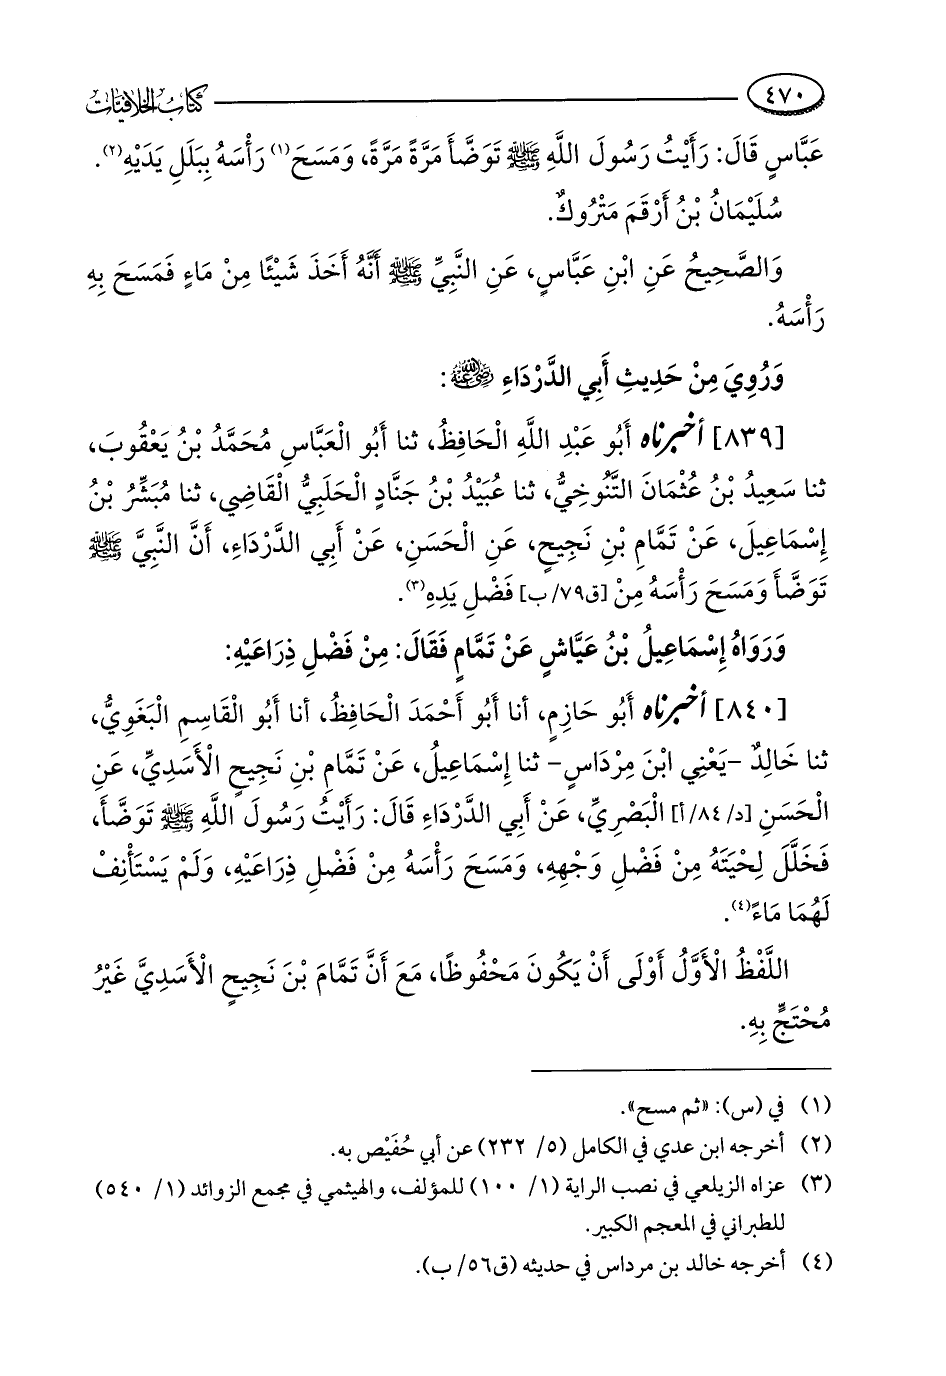 ٤٧٠ كتاب الخلافيات
عَبَّاسٍ قَالَ: رَأَيْتُ رَسُولَ اللَّهِ ﷺ تَوَضَّأَ مَرَّةً مَرَّةً، وَمَسَحَ(١) رَأْسَهُ بِبَلَلِ يَدَيْهِ(٢).
سُلَيْمَانُ بْنُ أَرْقَمَ مَتْرُوكٌ.
وَالصَّحِيحُ عَنِ ابْنِ عَبَّاسٍ، عَنِ النَّبِيِّ ﷺ أَنَّهُ أَخَذَ شَيْئًا مِنْ مَاءٍ فَمَسَحَ بِهِ
رَأْسَهُ.
وَرُوِيَ مِنْ حَدِيثِ أَبِي الدَّرْدَاءِ رضي الله عنه:
[٨٣٩] أخبرناه أَبُو عَبْدِ اللَّهِ الْحَافِظُ، ثنا أَبُو الْعَبَّاسِ مُحَمَّدُ بْنُ يَعْقُوبَ،
ثنا سَعِيدُ بْنُ عُثْمَانَ التَّنُوخِيُّ، ثنا عُبَيْدُ بْنُ جَنَّادٍ الْحَلَبِيُّ الْقَاضِي، ثنا مُبَشِّرُ بْنُ
إِسْمَاعِيلَ، عَنْ تَمَّامِ بْنِ نَجِيحٍ، عَنِ الْحَسَنِ، عَنْ أَبِي الدَّرْدَاءِ، أَنَّ النَّبِيَّ ﷺ
تَوَضَّأَ وَمَسَحَ رَأْسَهُ مِنْ [ق٧٩/ ب] فَضْلِ يَدِهِ(٣).
وَرَوَاهُ إِسْمَاعِيلُ بْنُ عَيَّاشٍ عَنْ تَمَّامٍ فَقَالَ: مِنْ فَضْلِ ذِرَاعَيْهِ:
[٨٤٠] أخبرناه أَبُو حَازِمٍ، أنا أَبُو أَحْمَدَ الْحَافِظُ، أنا أَبُو الْقَاسِمِ الْبَغَوِيُّ،
ثنا خَالِدٌ -يَعْنِي ابْنَ مِرْدَاسٍ- ثنا إِسْمَاعِيلُ، عَنْ تَمَّامِ بْنِ نَجِيحٍ الْأَسَدِيِّ، عَنِ
الْحَسَنِ [د/ ٨٤/ أ] الْبَصْرِيِّ، عَنْ أَبِي الدَّرْدَاءِ قَالَ: رَأَيْتُ رَسُولَ اللَّهِ ﷺ تَوَضَّأَ،
فَخَلَّلَ لِحْيَتَهُ مِنْ فَضْلِ وَجْهِهِ، وَمَسَحَ رَأْسَهُ مِنْ فَضْلِ ذِرَاعَيْهِ، وَلَمْ يَسْتَأْنِفْ
لَهُمَا مَاءً(٤).
اللَّفْظُ الْأَوَّلُ أَوْلَى أَنْ يَكُونَ مَحْفُوظًا، مَعَ أَنَّ تَمَّامَ بْنَ نَجِيحٍ الْأَسَدِيَّ غَيْرُ
مُحْتَجٍّ بِهِ.
(١) في (س): «ثم مسح».
(٢) أخرجه ابن عدي في الكامل (٥/ ٢٣٢) عن أبي حُفَيْص به.
(٣) عزاه الزيلعي في نصب الراية (١/ ١٠٠) للمؤلف، والهيثمي في مجمع الزوائد (١/ ٥٤٠)
للطبراني في المعجم الكبير.
(٤) أخرجه خالد بن مرداس في حديثه (ق٥٦/ ب).